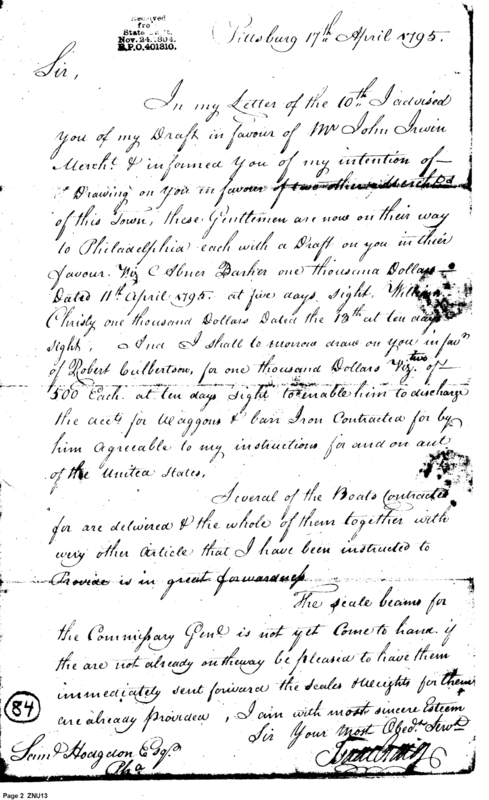 Received
from
State
Nov. 24. 1894.
R.P.O. 401310.
Pittsburg 17th April 1795.
Sir,
In my Letter of the 10th I advised
you of my Draft in favour of Mr John Irwin
Mercht & informed you of my intention of
Drawing on you in favour of two other Merchts
of this Town, these Gentlemen are now on their way
to Philadelphia each with a Draft on you in their
favour. Viz C Abner Barker one thousand Dollars
Dated 11th April 1795. at five days sight, William
Christy one thousand Dollars Dated the 13th at ten days
sight, And I shall to morrow draw on you in favr
of Robert Culbertson, for one thousand Dollars Viz. two of
500 Each at ten days sight to enable him to discharge
the accts for Waggons & barr Iron Contracted for by
him Agreeable to my instructions for and on act
of the United States.
Several of the Boats Contracted
for are delivered & the whole of them together with
every other Article that I have been instructed to
Provide is in great forwardness
The scale beams for
the Commissary Genl is not yet Come to hand. if
the are not already on the way be pleased to have them
immediately sent forward the scales & Weights for them
are already provided, I am with most sincere Esteem
Sir Your Most Obedt Servt
Saml Hodgdon Esqr
Pha
84
Page 2 ZNU13